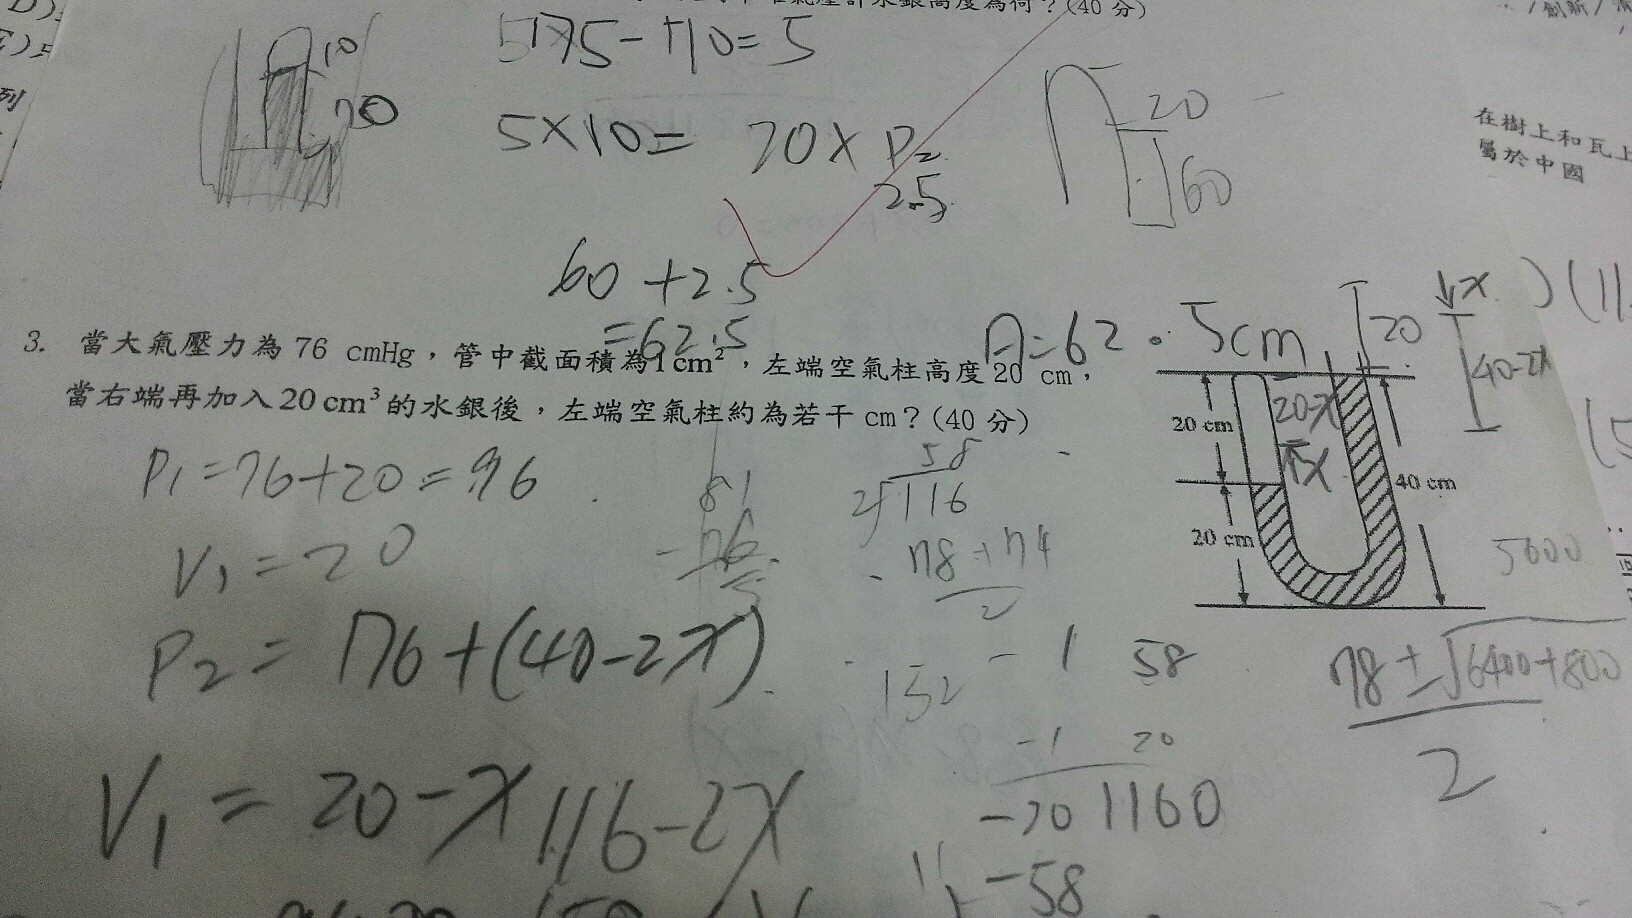 氣壓計水銀高度為何？(40 分)
75-70=5
10
70
5×10= 20×P2
2.5
20
60
60+2.5
=62.5
A=62.5cm
在樹上和瓦上
屬於中國
3. 當大氣壓力為 76 cmHg，管中截面積為1cm²，左端空氣柱高度 20 cm，
當右端再加入 20 cm³ 的水銀後，左端空氣柱約為若干 cm？(40 分)
20
x
40-2x
20-x
20 cm
40 cm
20 cm
P1=76+20=96
V1=20
P2=76+(40-2x)
V1=20-x
116-2x
81
-76
5
58
2√116
78+74
2
152
-1 58
-1 20
-20 1160
-58
5600
78±√6400+800
2